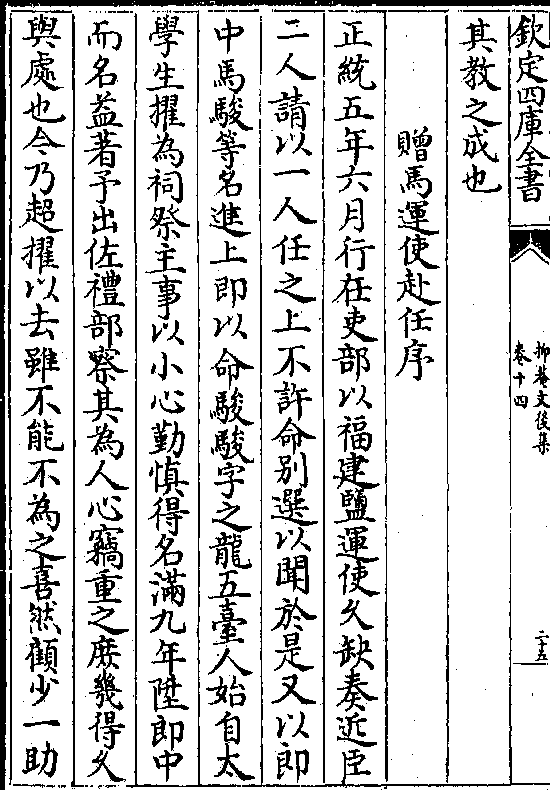 欽定四庫全書
抑菴文後集
卷十四
二十五
其教之成也
贈馬運使赴任序
正統五年六月行在吏部以福建鹽運使久缺奏近臣
二人請以一人任之上不許命別選以聞於是又以郎
中馬駿等名進上即以命駿駿字之龍五臺人始自太
學生擢為祠祭主事以小心勤慎得名滿九年陞郎中
而名益著予出佐禮部察其為人心竊重之庶幾得久
與處也今乃超擢以去雖不能不為之喜然顧少一助